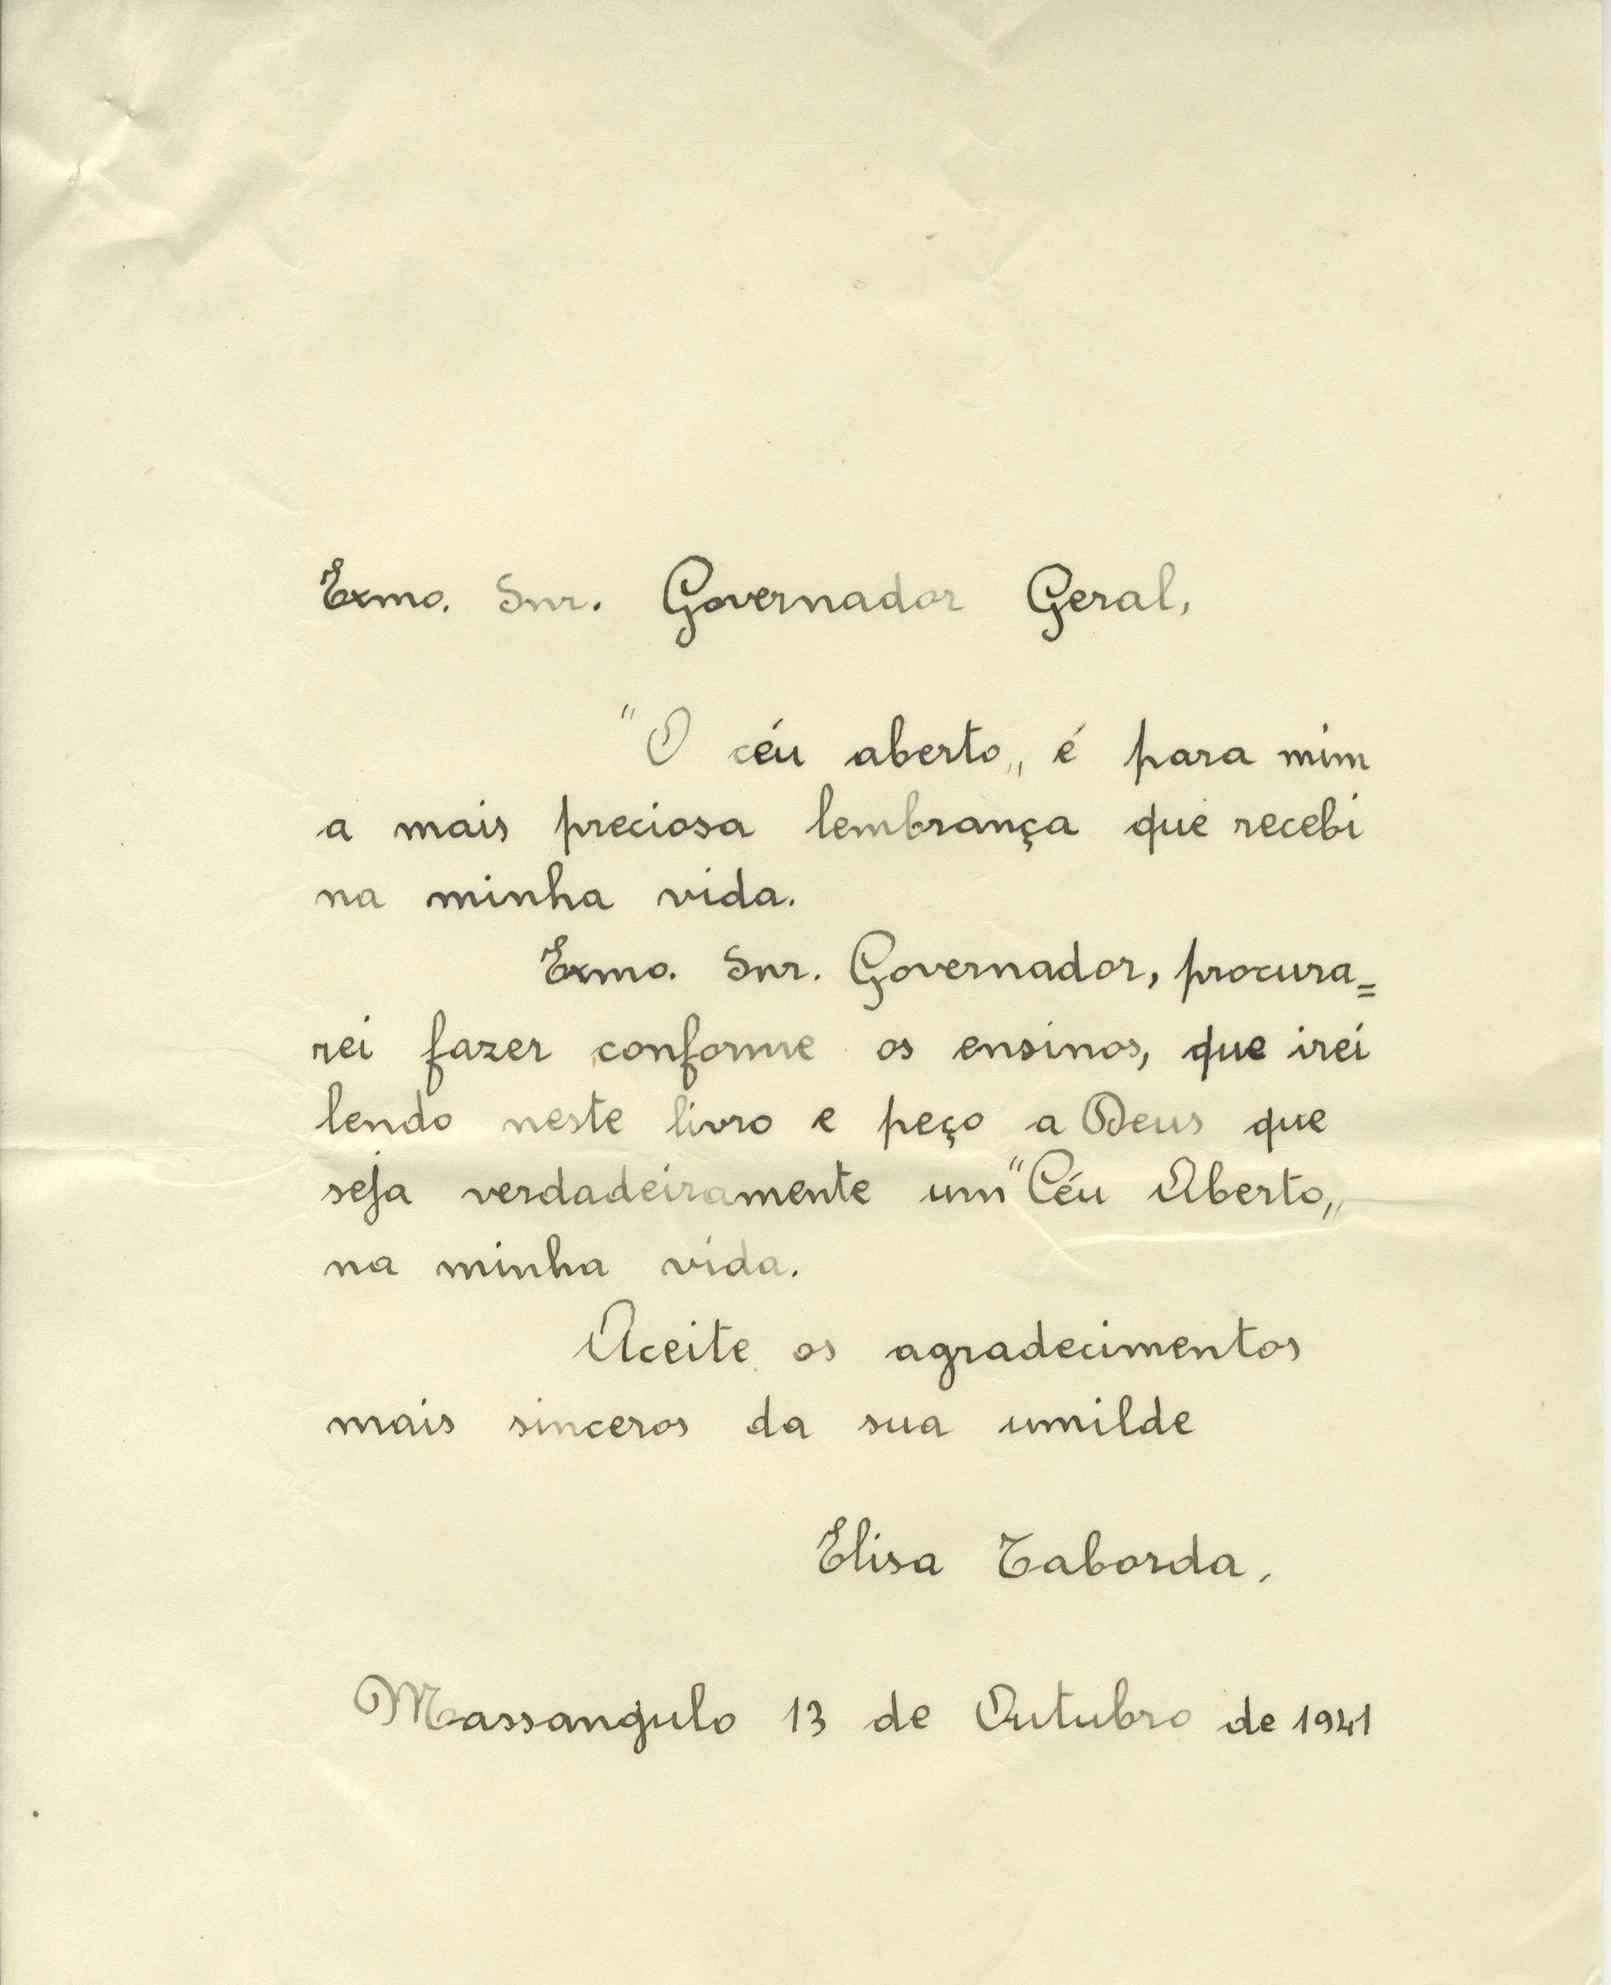 Exmo. Snr. Governador Geral,
"O céu aberto„ é para mim
a mais preciosa lembrança que recebi
na minha vida.
Exmo. Snr. Governador, procura=
rei fazer conforme os ensinos, que irei
lendo neste livro e peço a Deus que
seja verdadeiramente um "Céu Aberto„
na minha vida.
Aceite os agradecimentos
mais sinceros da sua umilde
Elisa Taborda.
Massangulo 13 de Outubro de 1941